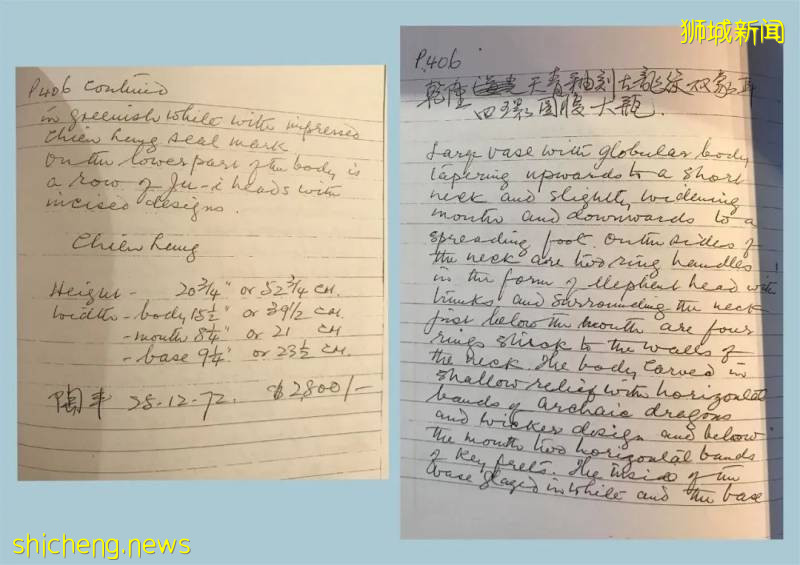 狮城新闻
P406 continued
in greenish white with impressed
Chien Lung seal mark
On the lower part of the body is
a row of Ju-i heads with
incised designs.
Chien Lung
Height - 20 3/4" or 52 3/4 CM.
Width - body 15 1/2" or 39 1/2 CM.
- mouth 8 1/4" or 21 CM
- base 9 1/4" or 23 1/2 CM.
28-12-72. $2800/-
P.406
乾隆 天青釉刻古龍紋双象耳
四環圓腹大瓶.
Large vase with globular body
tapering upwards to a short
neck and slightly widening
mouth and downwards to a
spreading foot. On the sides of
the neck are two ring handles
in the form of elephant head with
trunks and surrounding the neck
just below the mouth are four
rings stuck to the walls of
the neck. The body carved in
shallow relief with horizontal
bands of archaic dragons
and wicker design and below
the mouth two horizontal bands
of key frets. The inside of the
vase glazed in white and the base
shicheng.news